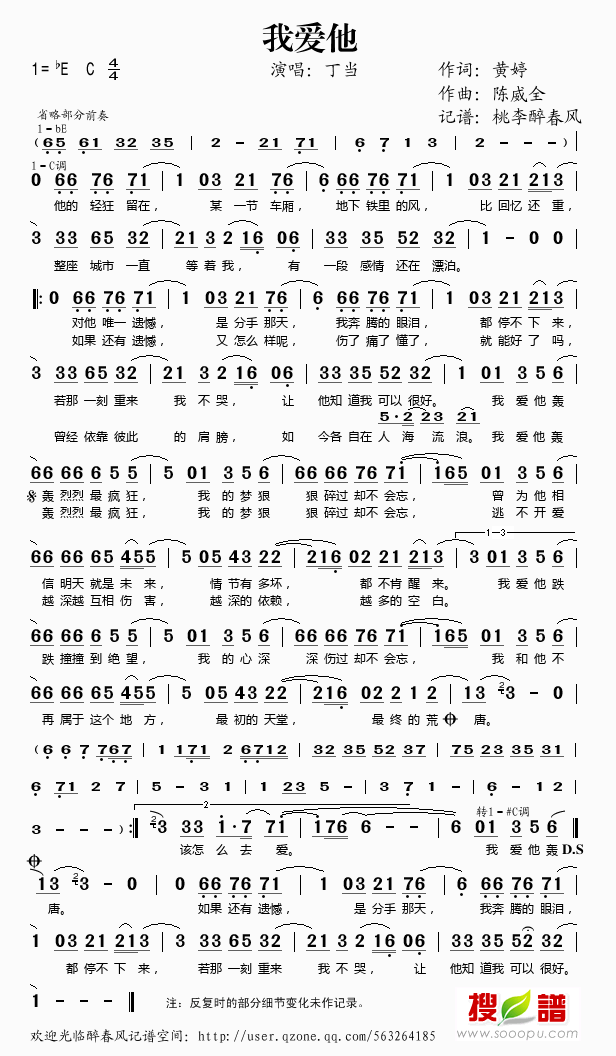 我爱他
1= ♭E C 4/4 演唱：丁当 作词：黄婷
作曲：陈威全
省略部分前奏 记谱：桃李醉春风
1-bE
(65 61 32 35 | 2 - 21 71 | 6 7 1 3 | 2 - - -)
1-C调
0 66 76 71 | 1 03 21 76 | 6 66 76 71 | 1 03 21 213
他的 轻狂 留在， 某 一节 车厢， 地下 铁里 的风， 比 回忆 还 重，
3 33 65 32 | 21 3 2 16 06 | 33 35 52 32 | 1 - 0 0
整座 城市 一直 等 着 我， 有 一段 感情 还在 漂泊。
‖: 0 66 76 71 | 1 03 21 76 | 6 66 76 71 | 1 03 21 213
对他 唯一 遗憾， 是 分手 那天， 我奔 腾的 眼泪， 都 停不 下 来，
如果 还有 遗憾， 又 怎么 样呢， 伤了 痛了 懂了， 就 能好 了 吗，
3 33 65 32 | 21 3 2 16 06 | 33 35 52 32 | 1 01 3 5 6
若那 一刻 重来 我 不 哭， 让 他知 道我 可以 很好。 我 爱 他 轰
5·2 23 21
曾经 依靠 彼此 的 肩 膀， 如 今各 自在 人 海 流 浪。 我 爱 他 轰
66 66 6 5 5 | 5 01 3 5 6 | 66 66 76 71 | 165 01 3 5 6
轰 烈烈 最 疯 狂， 我 的 梦 狠 狠 碎过 却不 会忘， 曾 为 他 相
轰 烈烈 最 疯 狂， 我 的 梦 狠 狠 碎过 却不 会忘， 逃 不 开 爱
1-3
66 66 65 455 | 5 05 43 22 | 216 02 21 213 | 3 01 3 5 6
信 明天 就是 未 来， 情 节有 多坏， 都 不肯 醒 来。 我 爱 他 跌
越 深越 互相 伤 害， 越 深的 依赖， 越 多的 空 白。
66 66 6 5 5 | 5 01 3 5 6 | 66 66 76 71 | 165 01 3 5 6
跌 撞撞 到 绝 望， 我 的 心 深 深 伤过 却不 会忘， 我 和 他 不
66 66 65 455 | 5 05 43 22 | 216 02 2 1 2 | 13 3 - 0
再 属于 这个 地 方， 最 初的 天堂， 最 终 的 荒 唐。
(6 6 7 767 | 1 171 2 6712 | 32 35 52 37 | 75 23 35 31
6 71 2 7 | 5 - 3 1 | 1 23 5 - | 3 7 1 - | 6 - 12
2 转1-#C调
3 - - ) :‖ 3 33 1·7 71 | 176 6 - - | 6 01 3 5 6 ‖
该怎 么 去 爱。 我 爱 他 轰 D.S
13 3 - 0 | 0 66 76 71 | 1 03 21 76 | 6 66 76 71
唐。 如果 还有 遗憾， 是 分手 那天， 我奔 腾的 眼泪，
1 03 21 213 | 3 33 65 32 | 21 3 2 16 06 | 33 35 52 32
都 停不 下 来， 若那 一刻 重来 我 不 哭， 让 他知 道我 可以 很好。
1 - - ‖ 注：反复时的部分细节变化未作记录。
搜谱
欢迎光临醉春风记谱空间：http://user.qzone.qq.com/563264185
www.sooopu.com